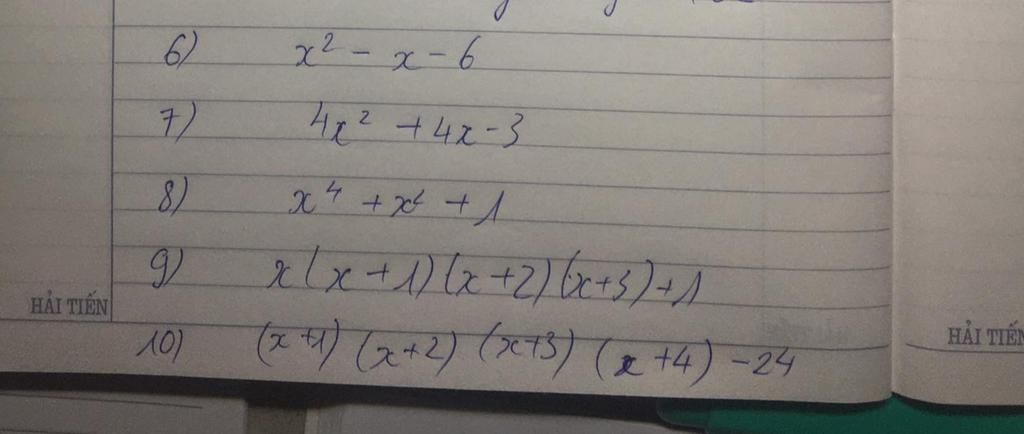 6) x² - x - 6
7) 4x² + 4x - 3
8) x⁴ + x² + 1
9) x(x+1)(x+2)(x+3)+1
HẢI TIẾN
HẢI TIẾN
10) (x+1) (x+2) (x+3) (x+4) - 24